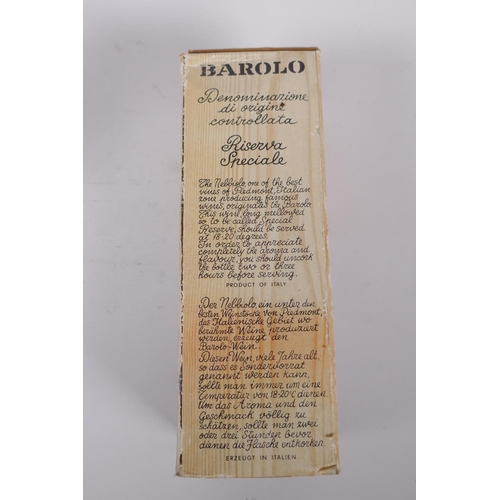 BAROLO
Denominazione
di origine
controllata
Riserva
Speciale
The Nebbiolo, one of the best
vines of Piedmont, Italian
zone producing famous
wines, originates the Barolo.
This wine, long mellowed
so to be called Special
Reserve, should be served
at 18-20 degrees.
In order to appreciate
completely the aroma and
flavour, you should uncork
the bottle two or three
hours before serving.
PRODUCT OF ITALY
Der Nebbiolo, ein unter den
besten Weinstöcke von Piedmont,
das Italienische Gebiet wo
berühmte Weine produziert
werden, erzeugt den
Barolo-Wein.
Diesen Wein, viele Jahre alt,
so dass es Sondervorrat
genannt werden kann,
sollte man immer um eine
Temperatur von 18-20°C
Um das Aroma und den
Geschmack völlig zu
schätzen, sollte man zwei
oder drei Stunden bevor
dienen die Flasche entkorken.
ERZEUGT IN ITALIEN